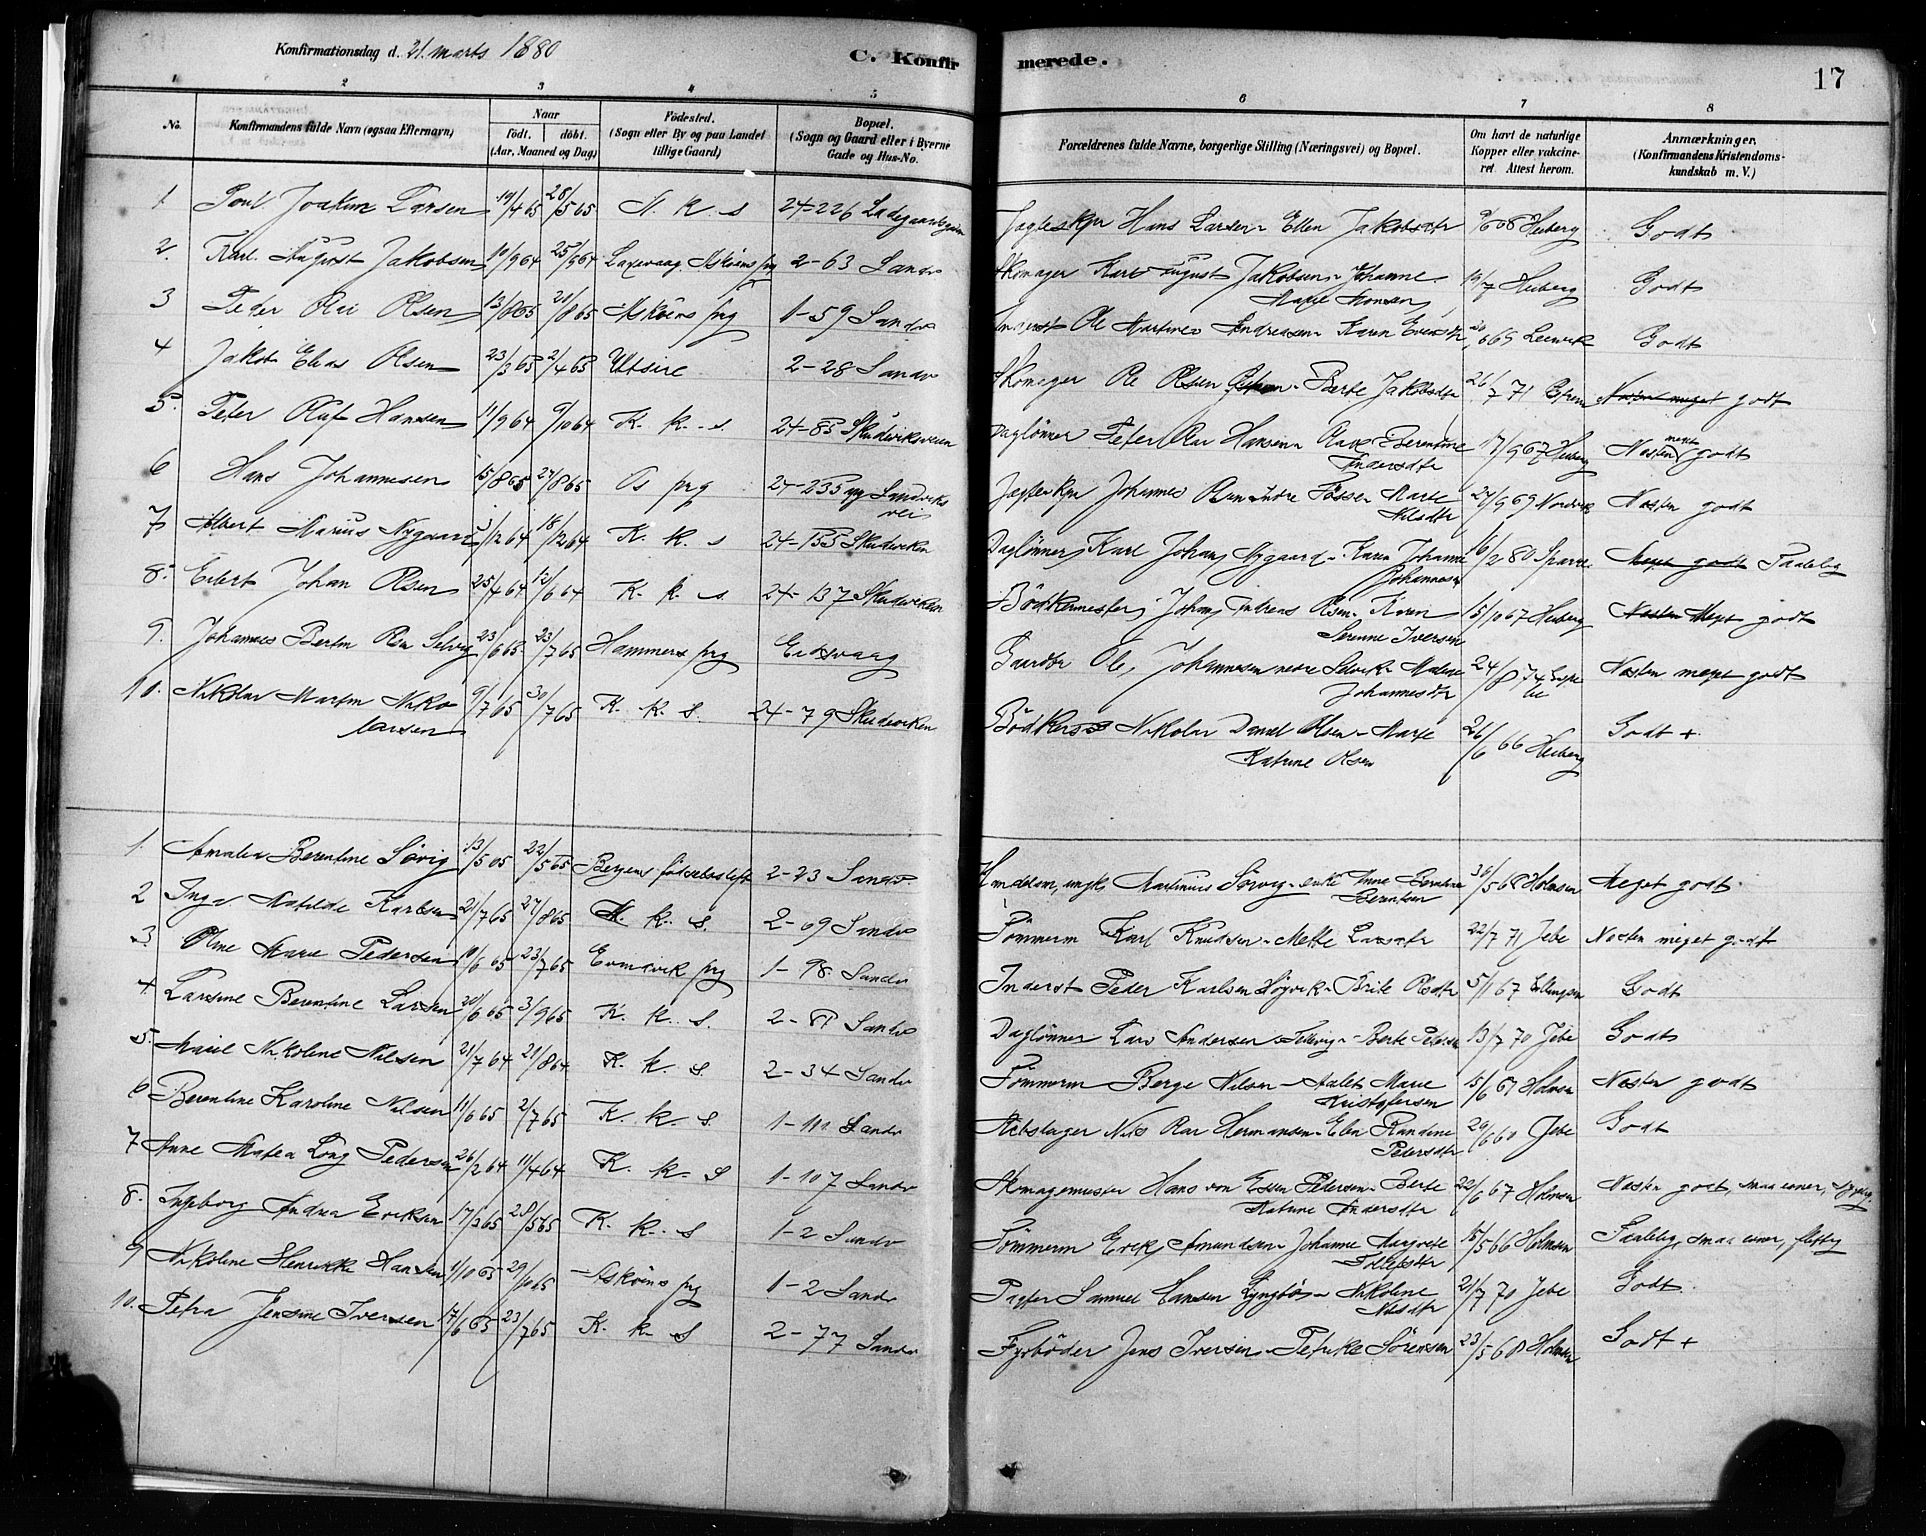 Konfirmationsdag d. 21. marts 1880
C. Konfir
merede.
17
1 2 3 4 5 6 7 8
No.
Konfirmandens fulde Navn (ogsaa Efternavn)
Naar
födt. döbt.
(Aar, Maaned og Dag)
Födested.
(Sogn eller By og paa Landet
tillige Gaard)
Bopæl.
(Sogn og Gaard eller i Byerne
Gade og Hus-No.
Forældrenes fulde Navne, borgerlige Stilling (Næringsvei) og Bopæl.
Om havt de naturlige
Kopper eller vakcine-
ret. Attest herom.
Anmærkninger.
(Konfirmandens Kristendoms-
kundskab m. V.)
1 Poul Joakim Larsen 19/4 65 28/5 65 N. k. s 24-226 Ladegaardsgaden Jægteskpr Hans Larsen - Ellen Jakobsdtr Heiberg Godt
2. Karl August Jakobsen 10/9 64 25/9 64 Laxevaag Askøens prg 2-63 Sandv Skomager Karl August Jakobsen - Johanne
Marie Monsen 19/7 Heiberg Godt
3 Peder Olai Olsen 13/8 65 20/8 65 Askøens prg 1-59 Sandv Inderst Ole Martines Andreasen - Karen Eversdtr Leervik Godt
4 Jakob Elias Olsen 23/3 65 2/4 65 Utsire 2-28 Sandv Skomager Ole Olsen - Berte Jakobsdtr 26/7 71 Næsten meget godt
5. Peter Oluf Hansen 11/9 64 9/10 64 K. k. s. 24-85 Skudeviksveien Daglönner Peter Olai Hansen - Olave Berentine
Andersdtr 17/9 67 Heiberg Næsten meget godt
6 Hans Johannesen 15/8 65 27/8 65 Os prg 24-235 Sandviks
vei Jægteskpr Johannes Olsen - Marte
Nilsdtr 24/9 69 Nordvik Næsten godt
7 Albert Marius Nygaard 5/12 64 18/12 64 K. k. s 24-155 Skudeviken Daglönner Karl Johan Nygaard - Karen Johanne
Johannesen 16/2 80 Sparre Meget godt Taalelig
8. Eilert Johan Olsen 25/4 64 12/6 64 K. k. s 24-137 Skudeviken Bödkermester Johan Andreas Olsen - Karen
Serenne Iversen 15/10 67 Heiberg Næsten Meget godt
9. Johannes Bertin Olsen Selvig 23/6 65 23/7 65 Hammers prg Eidsvaag Gaardbr Ole Johannesen nedre Selvik - Malene
Johannesdtr 24/8 74 Næsten meget godt
10. Nikolai Martin Niko
laisen 9/7 65 30/7 65 K. K. S. 24-79 Skudeviken Bödkers Nikolai Daniel Olsen - Marie
Katrine Olsen 26/6 66 Heiberg Godt +
1 Amalia Berentine Sörvig 13/5 65 22/5 65 Bergens födselsstift 2-23 Sandv. Martinus Sörvig - enke Anne Berentine
Berentsen 30/5 68 Holmsen Meget godt
2 Inga Matilde Karlsen 21/7 65 27/8 65 N. k. s. 2-69 Sandv Tömmerm Karl Knudsen - Mette Larsdtr 22/7 71 Jebe Næsten meget godt
3. Oline Marie Pedersen 10/6 65 23/7 65 Evindvik prg 1-98 Sandv Inderst Peder Karlsen Högvik - Brite Olsdtr 5/11 67 Ellingsen Godt
4 Larsine Berentine Larsen 20/6 65 3/9 65 K. k. S. 2-81 Sandv Daglönner Lars Andersen - Berte Pedersen 13/7 70 Jebe Godt
5. Marie Nikoline Nilsen 21/7 64 21/8 64 K. k. S. 2-34 Sandv Tömmerm Berge Nilsen - Aalet Marie
Kristofersen 15/6 67 Holmsen Næsten godt
6 Berentine Karoline Nilsen 11/6 65 2/7 65 K. k. S 1-111 Sandv Rebslager Nils Olai Hermansen - Elen Randine
Pedersdtr Jebe Godt
7 Anne Matea Long Pedersen 26/2 64 11/4 64 K. k. S 1-107 Sandv Skomagermester Hans von Essen Pedersen - Berte
Katrine Andersdtr 22/6 67 Holmsen Næsten godt, smaa evner,
8. Ingeborg Andrea Eriksen 17/3 65 28/5 65 K. k. S 1-2 Sandv Tömmerm Erik Amundsen - Johanne Margrete
Tollefsdtr 15/5 66 Holmsen Taalelig, smaa evner, flittig
9 Nikoline Henrikke Hansen 11/10 65 29/10 65 Askøens prg 1-2 Sandv Pagter Samuel Hansen Lyngbö - Nikoline
Nilsdtr 21/7 70 Jebe Godt
10. Petra Jensine Iversen 17/6 65 23/7 65 K. k. S 2-77 Sandv Fyrböder Jens Iversen - Petrike Sörensen 23/5 68 Holmsen Godt +